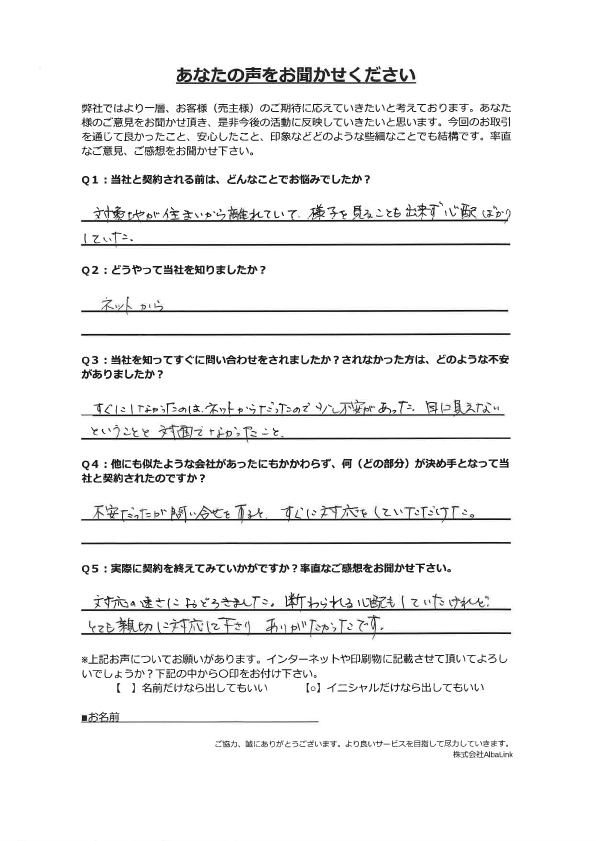 あなたの声をお聞かせください
弊社ではより一層、お客様（売主様）のご期待に応えていきたいと考えております。あなた
様のご意見をお聞かせ頂き、是非今後の活動に反映していきたいと思います。今回のお取引
を通じて良かったこと、安心したこと、印象などどのような些細なことでも結構です。率直
なご意見、ご感想をお聞かせ下さい。
Q1：当社と契約される前は、どんなことでお悩みでしたか？
対象地が住まいから離れていて、様子を見ることも出来ず心配ばかり
していた。
Q2：どうやって当社を知りましたか？
ネットから
Q3：当社を知ってすぐに問い合わせをされましたか？されなかった方は、どのような不安
がありましたか？
すぐにしなかったのは、ネットからだったので少し不安があった。目に見えない
ということと対面でなかったこと。
Q4：他にも似たような会社があったにもかかわらず、何（どの部分）が決め手となって当
社と契約されたのですか？
不安だったが問い合せをすると、すぐに対応をしていただけた。
Q5：実際に契約を終えてみていかがですか？率直なご感想をお聞かせ下さい。
対応の速さにおどろきました。断わられる心配もしていたけれど
とても親切に対応して下さり ありがたかったです。
※上記お声についてお願いがあります。インターネットや印刷物に記載させて頂いてよろし
いでしょうか？下記の中から〇印をお付け下さい。
【　】名前だけなら出してもいい　　【○】イニシャルだけなら出してもいい
■お名前
ご協力、誠にありがとうございます。より良いサービスを目指して尽力していきます。
株式会社AlbaLink